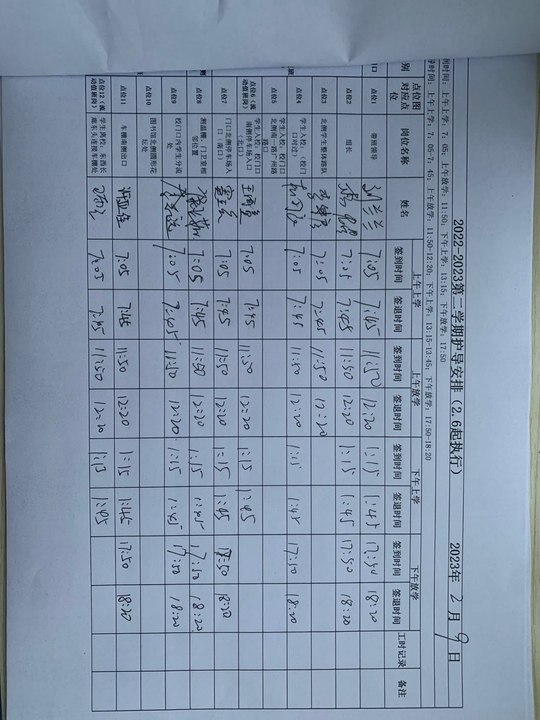 2022-2023第二学期护导安排（2.6起执行） 2023年 2 月 9 日
到时间：上午上学：7：05；上午放学：11:50；下午上学：13:15；下午放学：17:50
导时间：上午上学：7：05-7：45；上午放学：11:50-12:20；下午上学：13:15-13:45；下午放学：17:50-18:20
上午上学 上午放学 下午上学 下午放学
别 点位图对应点位 岗位名称 姓名 签到时间 签退时间 签到时间 签退时间 签到时间 签退时间 签到时间 签退时间 工时记录 备注
点位1 带班领导 刘兰兰 7:05 7:45 11:50 12:20 1:15 1:45 17:50 18:20
点位2 组长 7:05 7:45 11:50 12:20 1:15 1:45 17:50 18:20
点位3 北侧学生整体路队 7:05 7:45 11:50 12:20
点位4 学生入校：（校门口对过） 7:05 7:45 11:50 12:20 1:15 1:45 17:50 18:20
点位5 学生入校：校门口北侧南一路广州路路口
点位6（流动值班岗） 学生入校：校门口南侧停车场入口 7:05 7:45 11:50 12:20 1:15 1:45
点位7 门口北侧停车场入口（南口） 7:05 7:45 11:50 12:20 1:15 1:45 17:50 18:20
点位8 测温棚：门卫室相邻位置 7:05 7:45 11:50 12:20 1:15 1:45 17:50 18:20
点位9 校门口内学生分流 7:05 7:45 11:50 12:20 1:15 1:45 17:50 18:20
点位10 图书馆北侧圆形花坛处
点位11 车棚南侧出口 7:05 7:45 11:50 12:20 1:15 1:45 17:50 18:20
点位12（流动值班岗） 学生离校：东西长廊东头连接车棚处 7:05 7:45 11:50 12:20 1:15 1:45